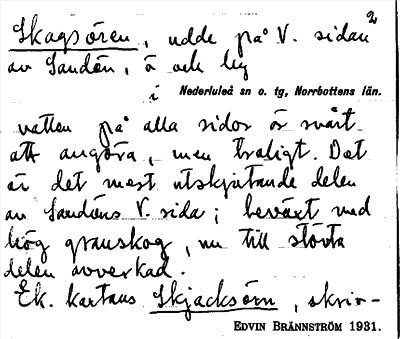 2
Skagsören, udde på V. sidan
av Sandön, ö och by
i Nederluleå sn o. tg, Norrbottens län.
vatten på alla sidor är svårt
att angöra, men tråligt. Det
är det mest utskjutande delen
av Sandöns V. sida; beväxt med
hög granskog, nu till största
delen avverkad.
Ek. kartans Skjacksörn, skriv-
EDVIN BRÄNNSTRÖM 1931.